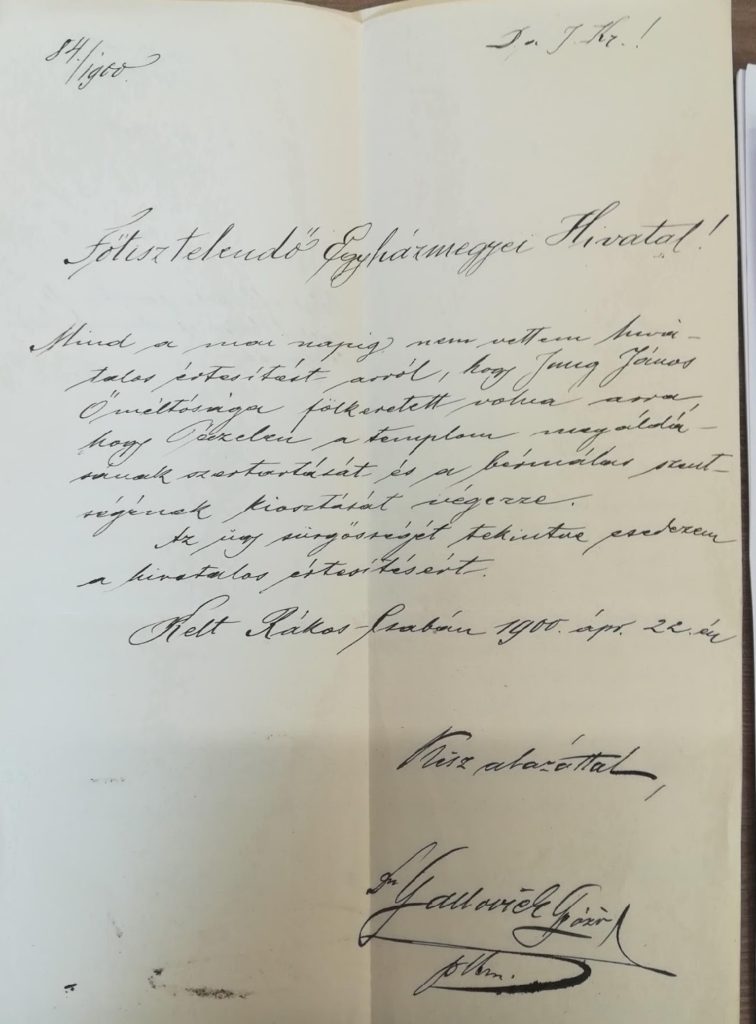 84./1900.
D. J. Kr.!
Főtisztelendő Egyházmegyei Hivatal!
Mind a mai napig nem vettem hiva-
talos értesítést arról, hogy Jung János
Őméltósága fölkéretett volna arra
hogy Péczelen a templom megáldá-
sának szertartását és a bérmálás szent-
ségének kiosztását végezze.
Az ügy sürgősségét tekintve esedezem
a hivatalos értesítésért.
Kelt Rákos-Csabán 1900. ápr. 22.-én
Kész alázattal,
Dr Gallovich Győző
plbn.